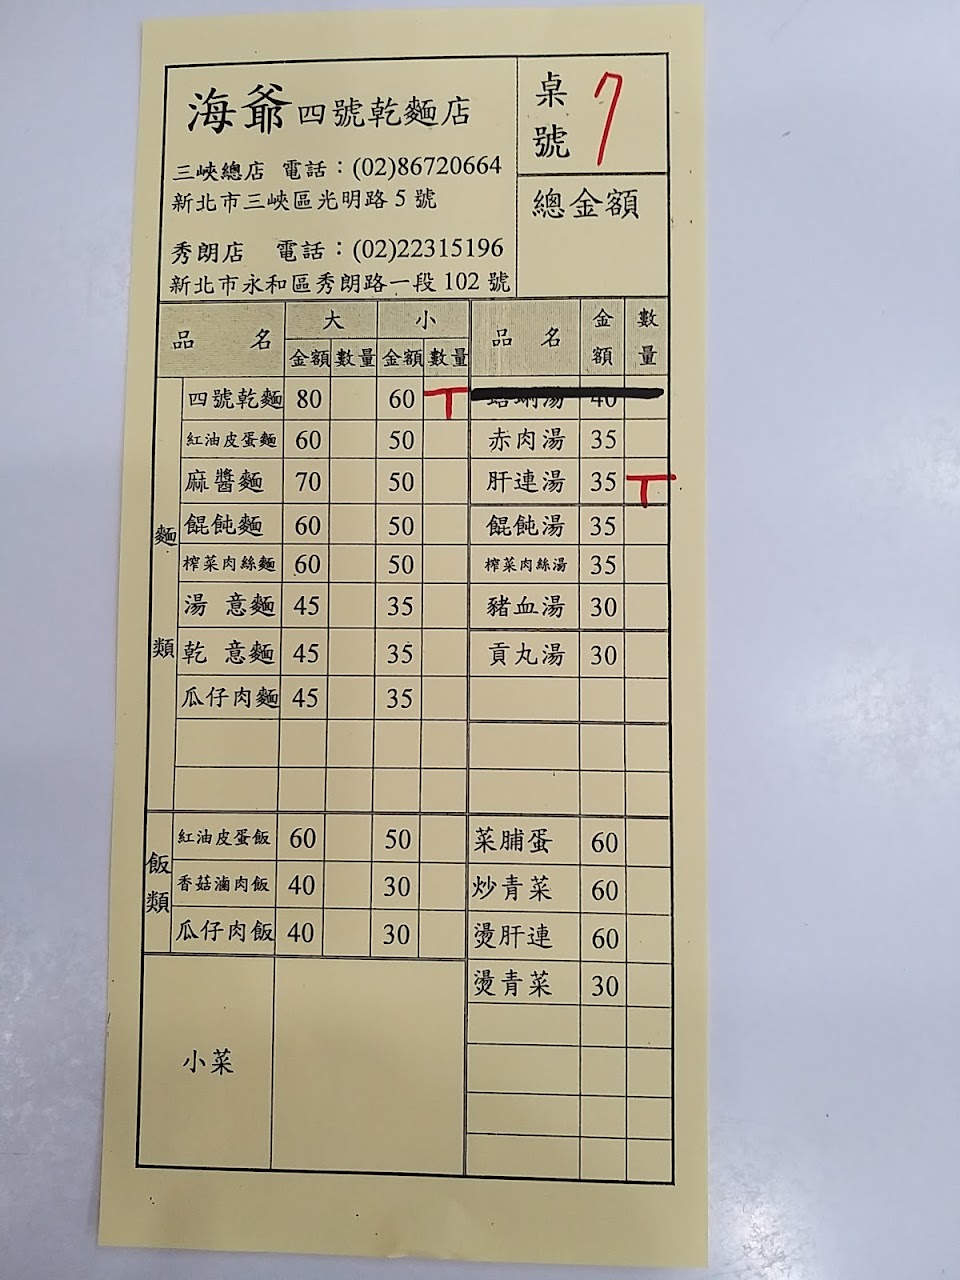 海爺四號乾麵店
三峽總店 電話：(02)86720664
新北市三峽區光明路 5 號
秀朗店 電話：(02)22315196
新北市永和區秀朗路一段 102 號
桌號 7
總金額
品 名 大 小
金額 數量 金額 數量
品 名 金額 數量
麵類
四號乾麵 80 60 T
紅油皮蛋麵 60 50
麻醬麵 70 50
餛飩麵 60 50
榨菜肉絲麵 60 50
湯 意麵 45 35
乾 意麵 45 35
瓜仔肉麵 45 35
蛤蜊湯 40
赤肉湯 35
肝連湯 35 T
餛飩湯 35
榨菜肉絲湯 35
豬血湯 30
貢丸湯 30
飯類
紅油皮蛋飯 60 50
香菇滷肉飯 40 30
瓜仔肉飯 40 30
菜脯蛋 60
炒青菜 60
燙肝連 60
燙青菜 30
小菜